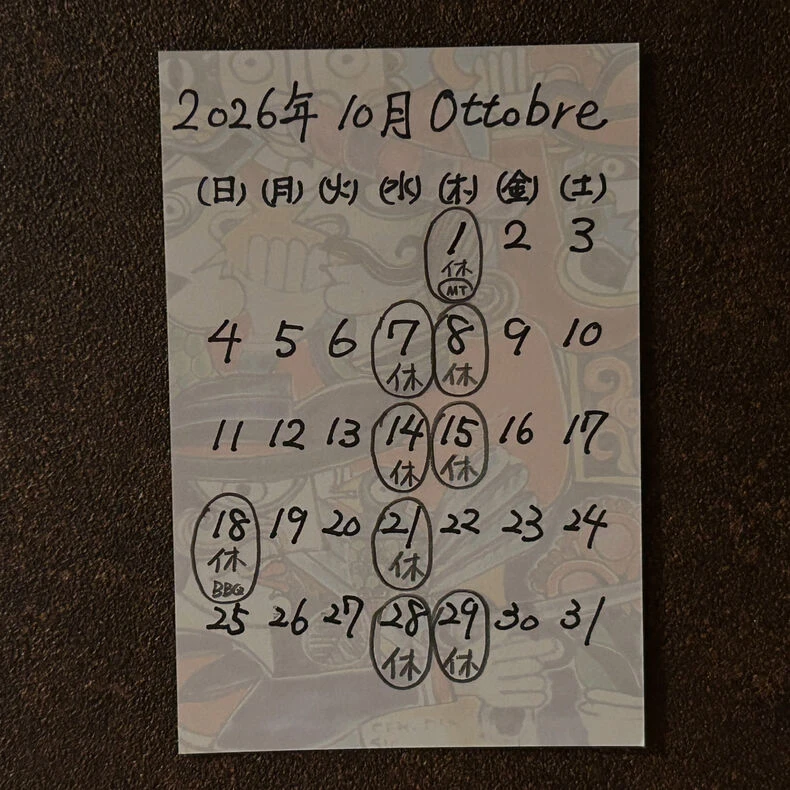 2026年 10月 Ottobre
(日) (月) (火) (水) (木) (金) (土)
1 2 3
休
MT
4 5 6 7 8 9 10
休 休
11 12 13 14 15 16 17
休 休
18 19 20 21 22 23 24
休 休
BBQ
25 26 27 28 29 30 31
休 休